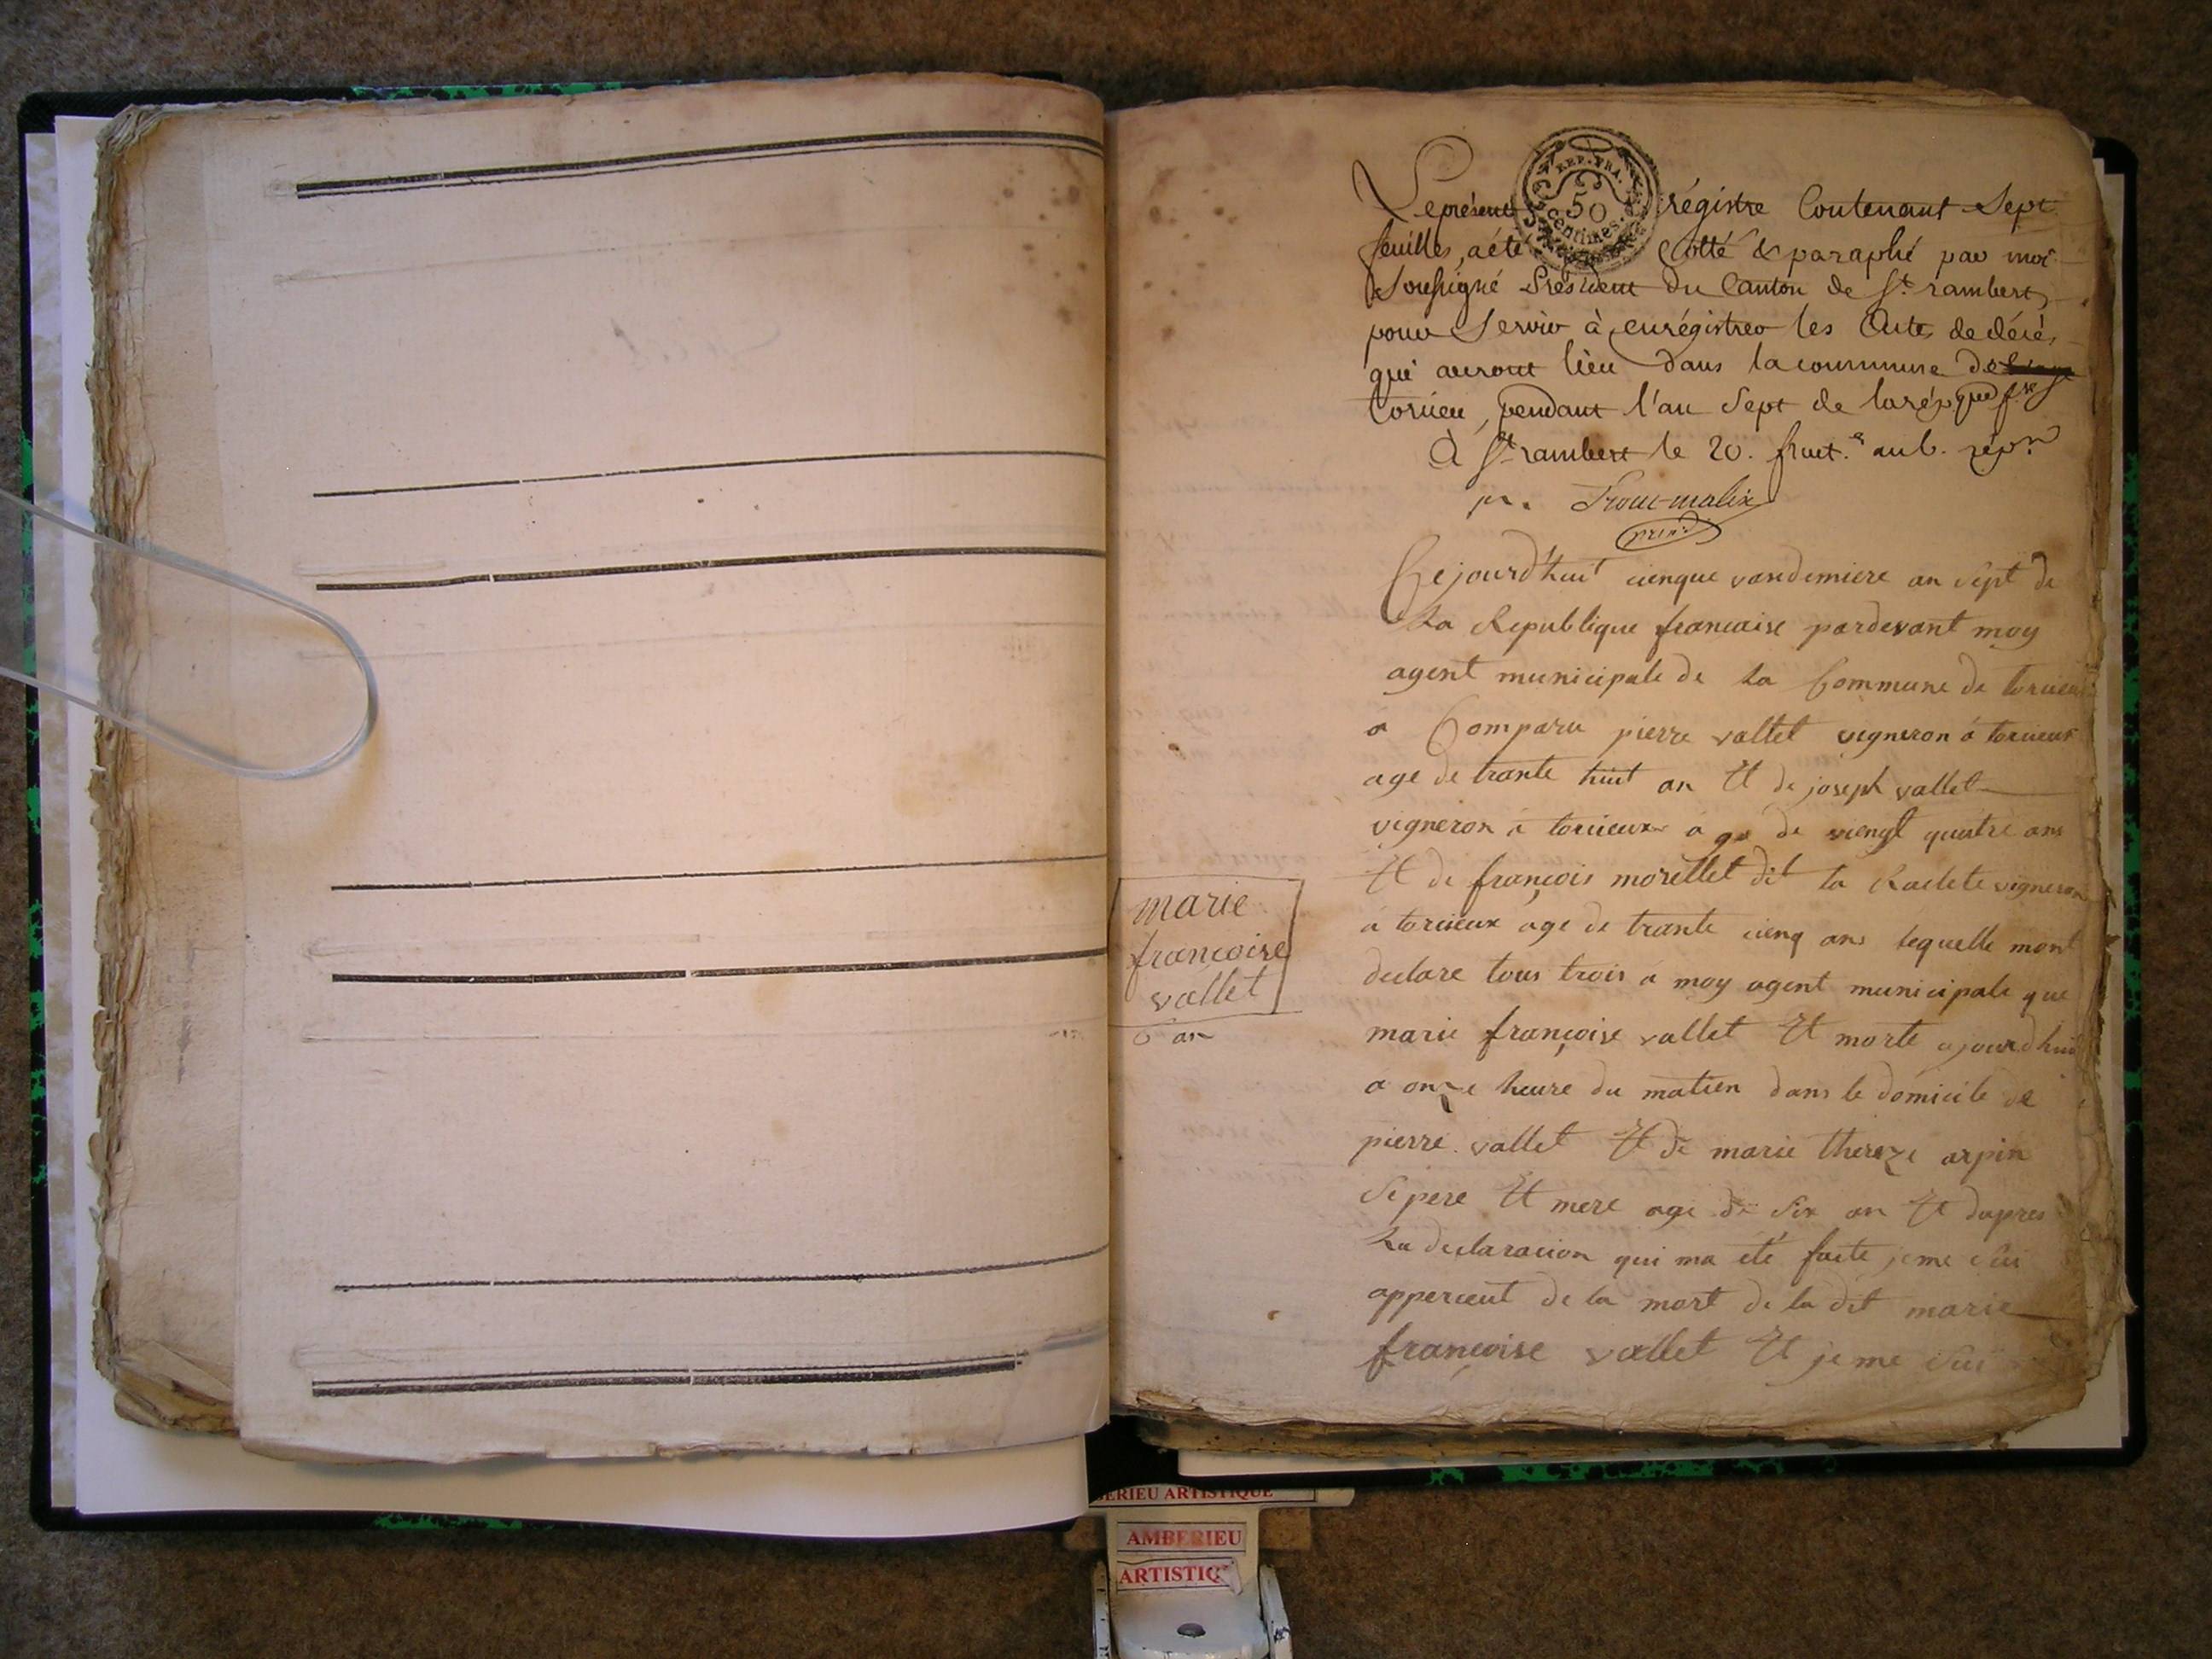 REP. FRA.
50
Centimes.
Le présent régistre Contenant Sept
feuilles, a été Cotté & paraphé par moi
Soussigné Président du Canton de St. rambert,
pour Servir à enrégistrer les Actes de décès,
qui auront lieu dans la commune de
torcieu, pendant l'an Sept de la répque frse
À St rambert le 20. fruct.r an 6. rép.n
pr.
Cejourd'hui cienque vandemiere an Sept de
La Republique francaise pardevant moy
agent municipale de La Commune de torcieu
a Comparu pierre vallet vigneron á torcieux
age de trante huit an Et de joseph vallet
vigneron á torcieux age de viengt quatre ans
Et de françois morellet dit la Raclete vigneron
á torcieux age de trante cienq ans lequelle mont
declare tous trois á moy agent municipale que
marie françoise vallet Et morte ajourdhui
a onze heure du matien dans le domicile de
pierre vallet Et de marie thereze arpin
Se pere Et mere age de Six an Et dapres
La declaracion qui ma été faite je me sui
appercent de la mort de la dit marie
françoise vallet Et je me sui
marie
françoise
vallet
6 an
AMBERIEU ARTISTIQUE
AMBERIEU
ARTISTIQ